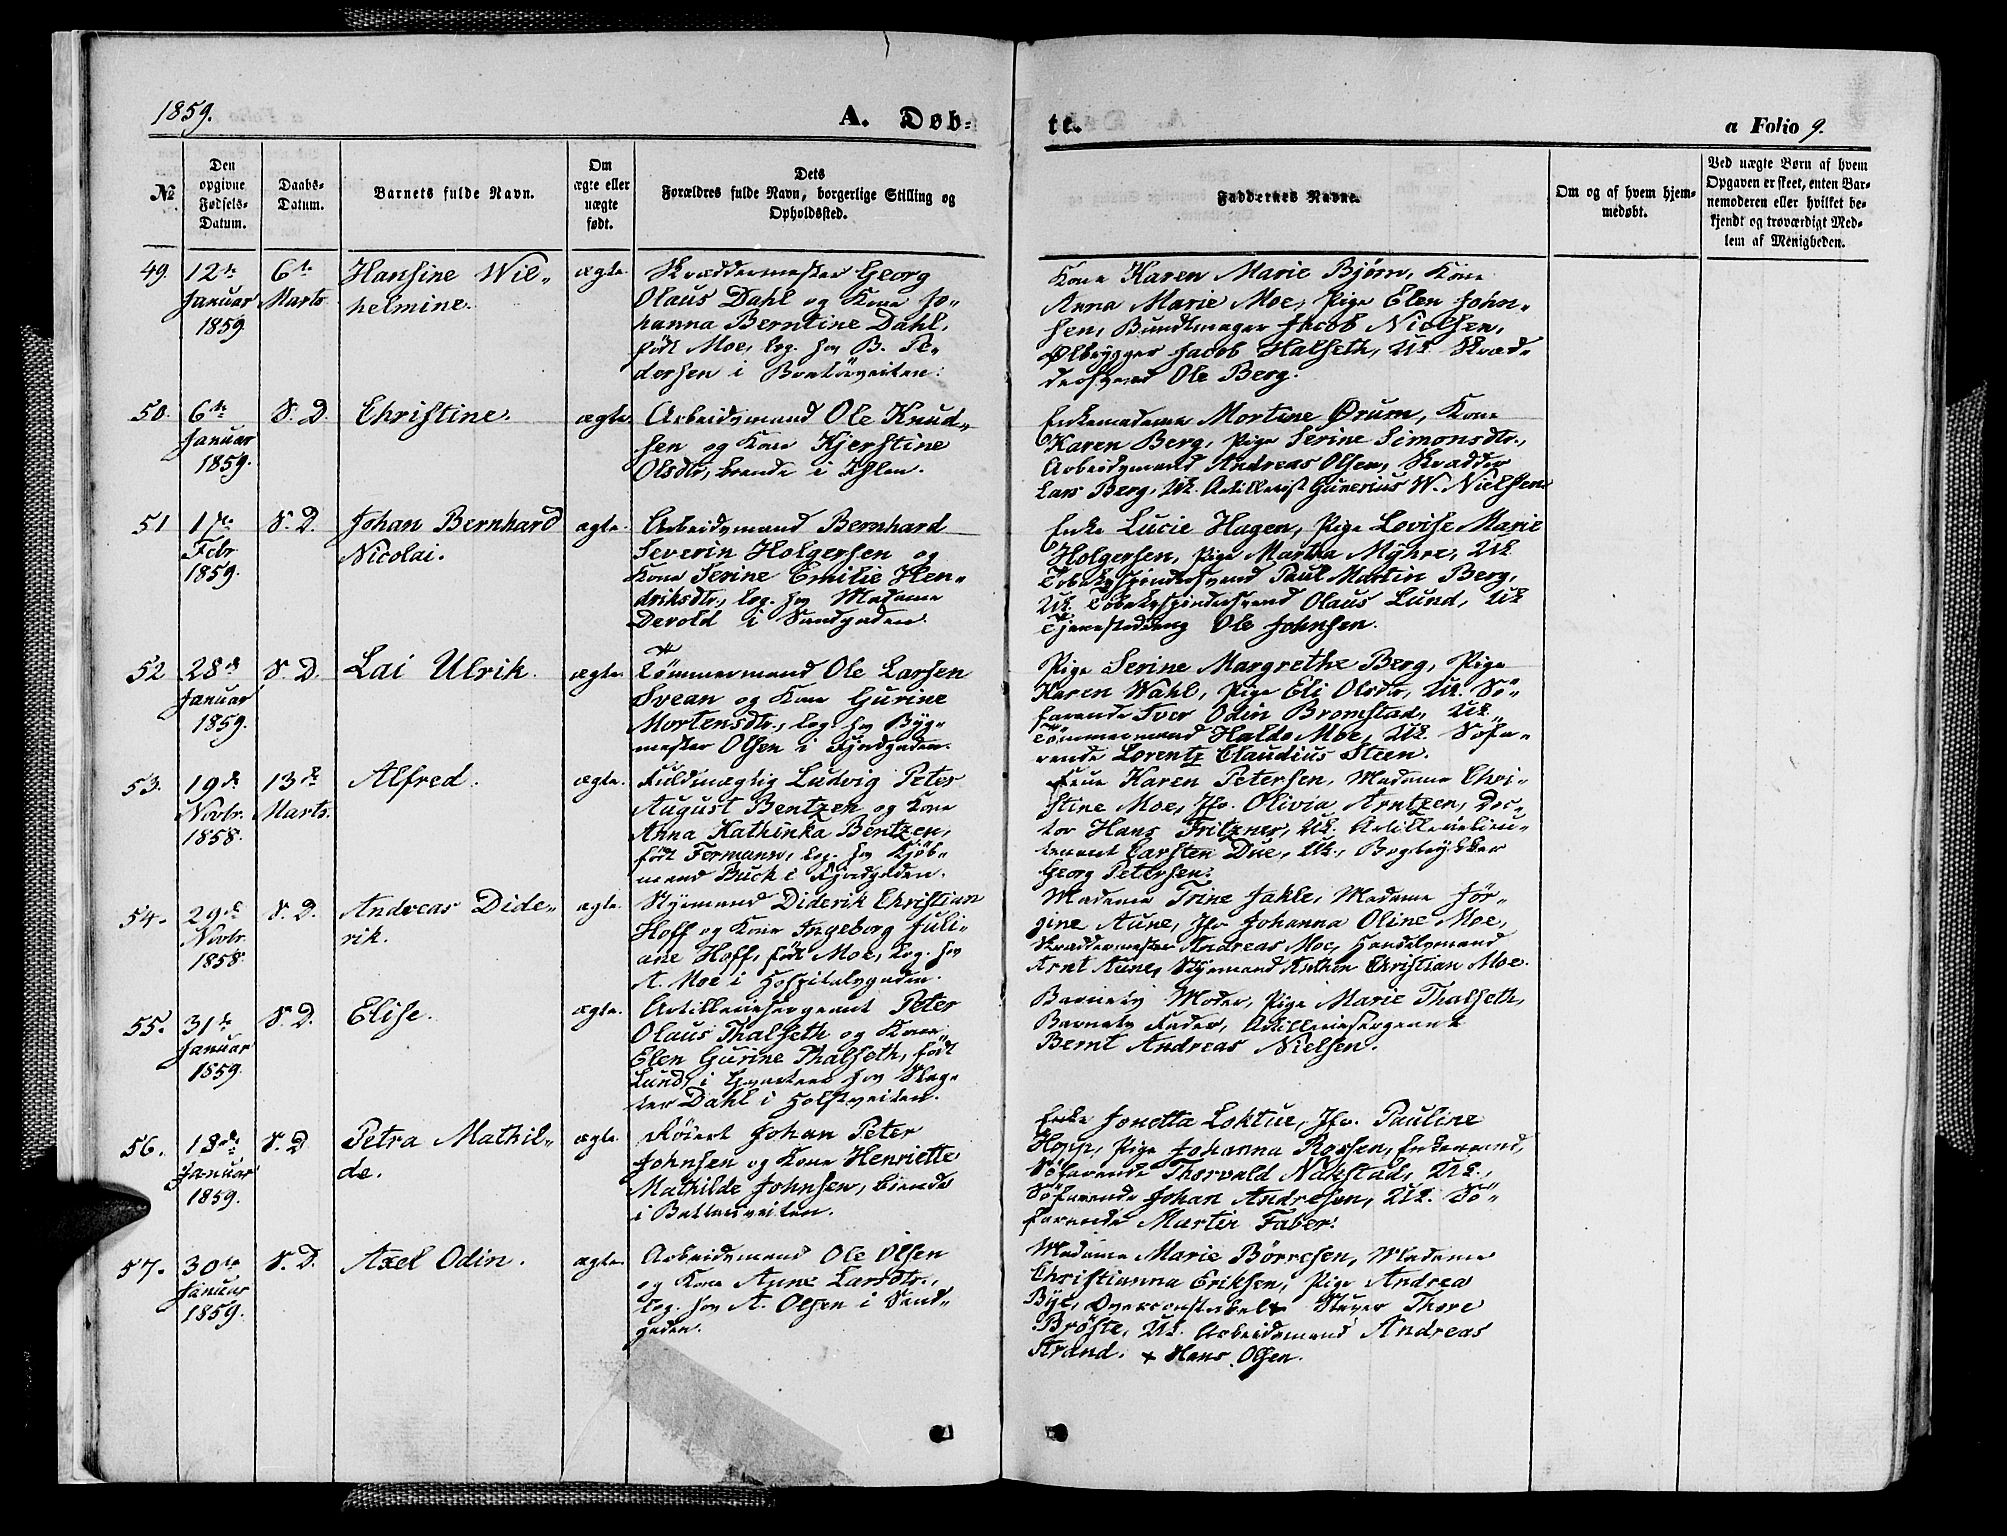 1859.
A. Døb-
te.
a Folio 9.
№
Den opgivne Fødsels-Datum.
Daabs-Datum.
Barnets fulde Navn.
Om ægte eller uægte født.
Dets Forældres fulde Navn, borgerlige Stilling og Opholdssted.
Faddernes Navne.
Om og af hvem hjem-
medøbt.
Ved uægte Børn af hvem
Opgaven er skeet, enten Bar-
nemoderen eller hvilket be-
kjendt og troværdigt Med-
lem af Menigheden.
49. 12te Januar 1859 6te Marts Hansine Wil-
helmine. ægte
Skræddermester Georg
Olaus Dahl og Kone Jo-
hanna Berntine Dahl,
født Moe, log. hos B. Pe-
dersen i
Kone Karen Marie Bjørn, Kone
Anna Marie Moe, Pige Elen John-
sen, Bundtmager Jacob Nielsen,
Ølbrygger Jacob Halseth, Uk. Skræd-
dersvend Ole Berg.
50. 6te Januar 1859. S. D. Christine. ægte
Arbeidsmand Ole Knud-
sen og Kone Kjerstine
Olsdtr, boende i Ihlen.
Enkemadame Mortine Ørum, Kone
Karen Berg, Pige Serine Simonsdtr.,
Arbeidsmand Andreas Olsen, Skrædder
Lars Berg, Uk. Artillerist Gunerius W. Nielsen
51 1ste Febr 1859. S. D. Johan Bernhard
Nicolai. ægte.
Arbeidsmand Bernhard
Severin Holgersen og
Kone Serine Emilie Hen-
driksdtr., log. hos Madame
Devold i Sandgaden.
Enke Lucie Hagen, Pige Lovise Marie
Holgersen, Pige Martha Myhre, Uk
Tobaksspindersvend Paul Martin Berg,
Uk. Tobaksspindersvend Olaus Lund, Uk
Tjenestedreng Ole Johnsen.
52 28de Januar 1859. S. D. Lai Ulrik. ægte.
Tømmermand Ole Larsen
Svean og Kone Gurine
Mortensdtr., log. hos Byg-
mester Olsen i Fjordgaden.
Pige Serine Margrethe Berg, Pige
Karen Wahl, Pige Eli Olsdtr, Uk. Sø-
farende Iver Odin Bromstad, Uk.
Tømmermand Haldo Moe, Uk. Søfa-
rende Lorentz Claudius Steen.
53. 19de Novbr. 1858. 13de Marts. Alfred. ægte.
Fuldmægtig Ludvig Peter
August Bentzen og Kone
Anna Kathinka Bentzen,
født Formann, log. hos Kjøb-
mand Buck i Fjordgaden.
Frue Karen Petersen, Madame Chri-
stine Moe, Jfr. Olivia Arntzen, Doc-
tor Hans Fritzner, Uk. Artillerielieu-
tenant Carsten Due, Uk., Bogtrykker
Georg Petersen.
54. 29de Novbr. 1858. S. D. Andreas Dide-
rik. ægte.
Styrmand Diderik Christian
Hoff og Kone Ingeborg Juli-
ane Hoff, født Moe, log. hos
A. Moe i Hospitalsgaden.
Madame Trine Jakle, Madame Jør-
gine Aune, Jfr Johanna Oline Moe,
Skræddermester Andreas Moe, Handelsmand
Arnt Aune, Styrmand Anthon Christian Moe.
55. 31te Januar 1859. S. D. Elise. ægte.
Artilleriesergeant Peter
Olaus Thalseth og Kone
Elen Gurine Thalseth, født
Lund, i Qvarteer hos Slag-
ter Dahl i Holstveiten.
Barnets Moder, Pige Marie Thalseth,
Barnets Fader, Artilleriesergeant
Bernt Andreas Nielsen.
56. 13de Januar 1859. S. D. Petra Mathil-
de. ægte.
Røiert Johan Peter
Johnsen og Kone Henriette
Mathilde Johnsen, boende
i Bakkeveiten.
Enke Jonetta Loktue, Jfr. Pauline
Hopp, Pige Johanna Rossen, Enkemand,
Søfarende Thorvald Nakstad, Uk.,
Søfarende Johan Andresen, Uk. Sø-
farende Martin Faber.
57. 30te Januar 1859. S. D. Axel Odin. ægte.
Arbeidsmand Ole Olsen
og Kone Anne Larsdtr.,
log. hos A. Olsen i Sand-
gaden.
Madame Marie Börresen, Madame
Christianna Eriksen, Pige Andrea
Bye, Overconstabel + Thore
Bröste, Uk. Arbeidsmand Andreas
Strand. + Hans Olsen.